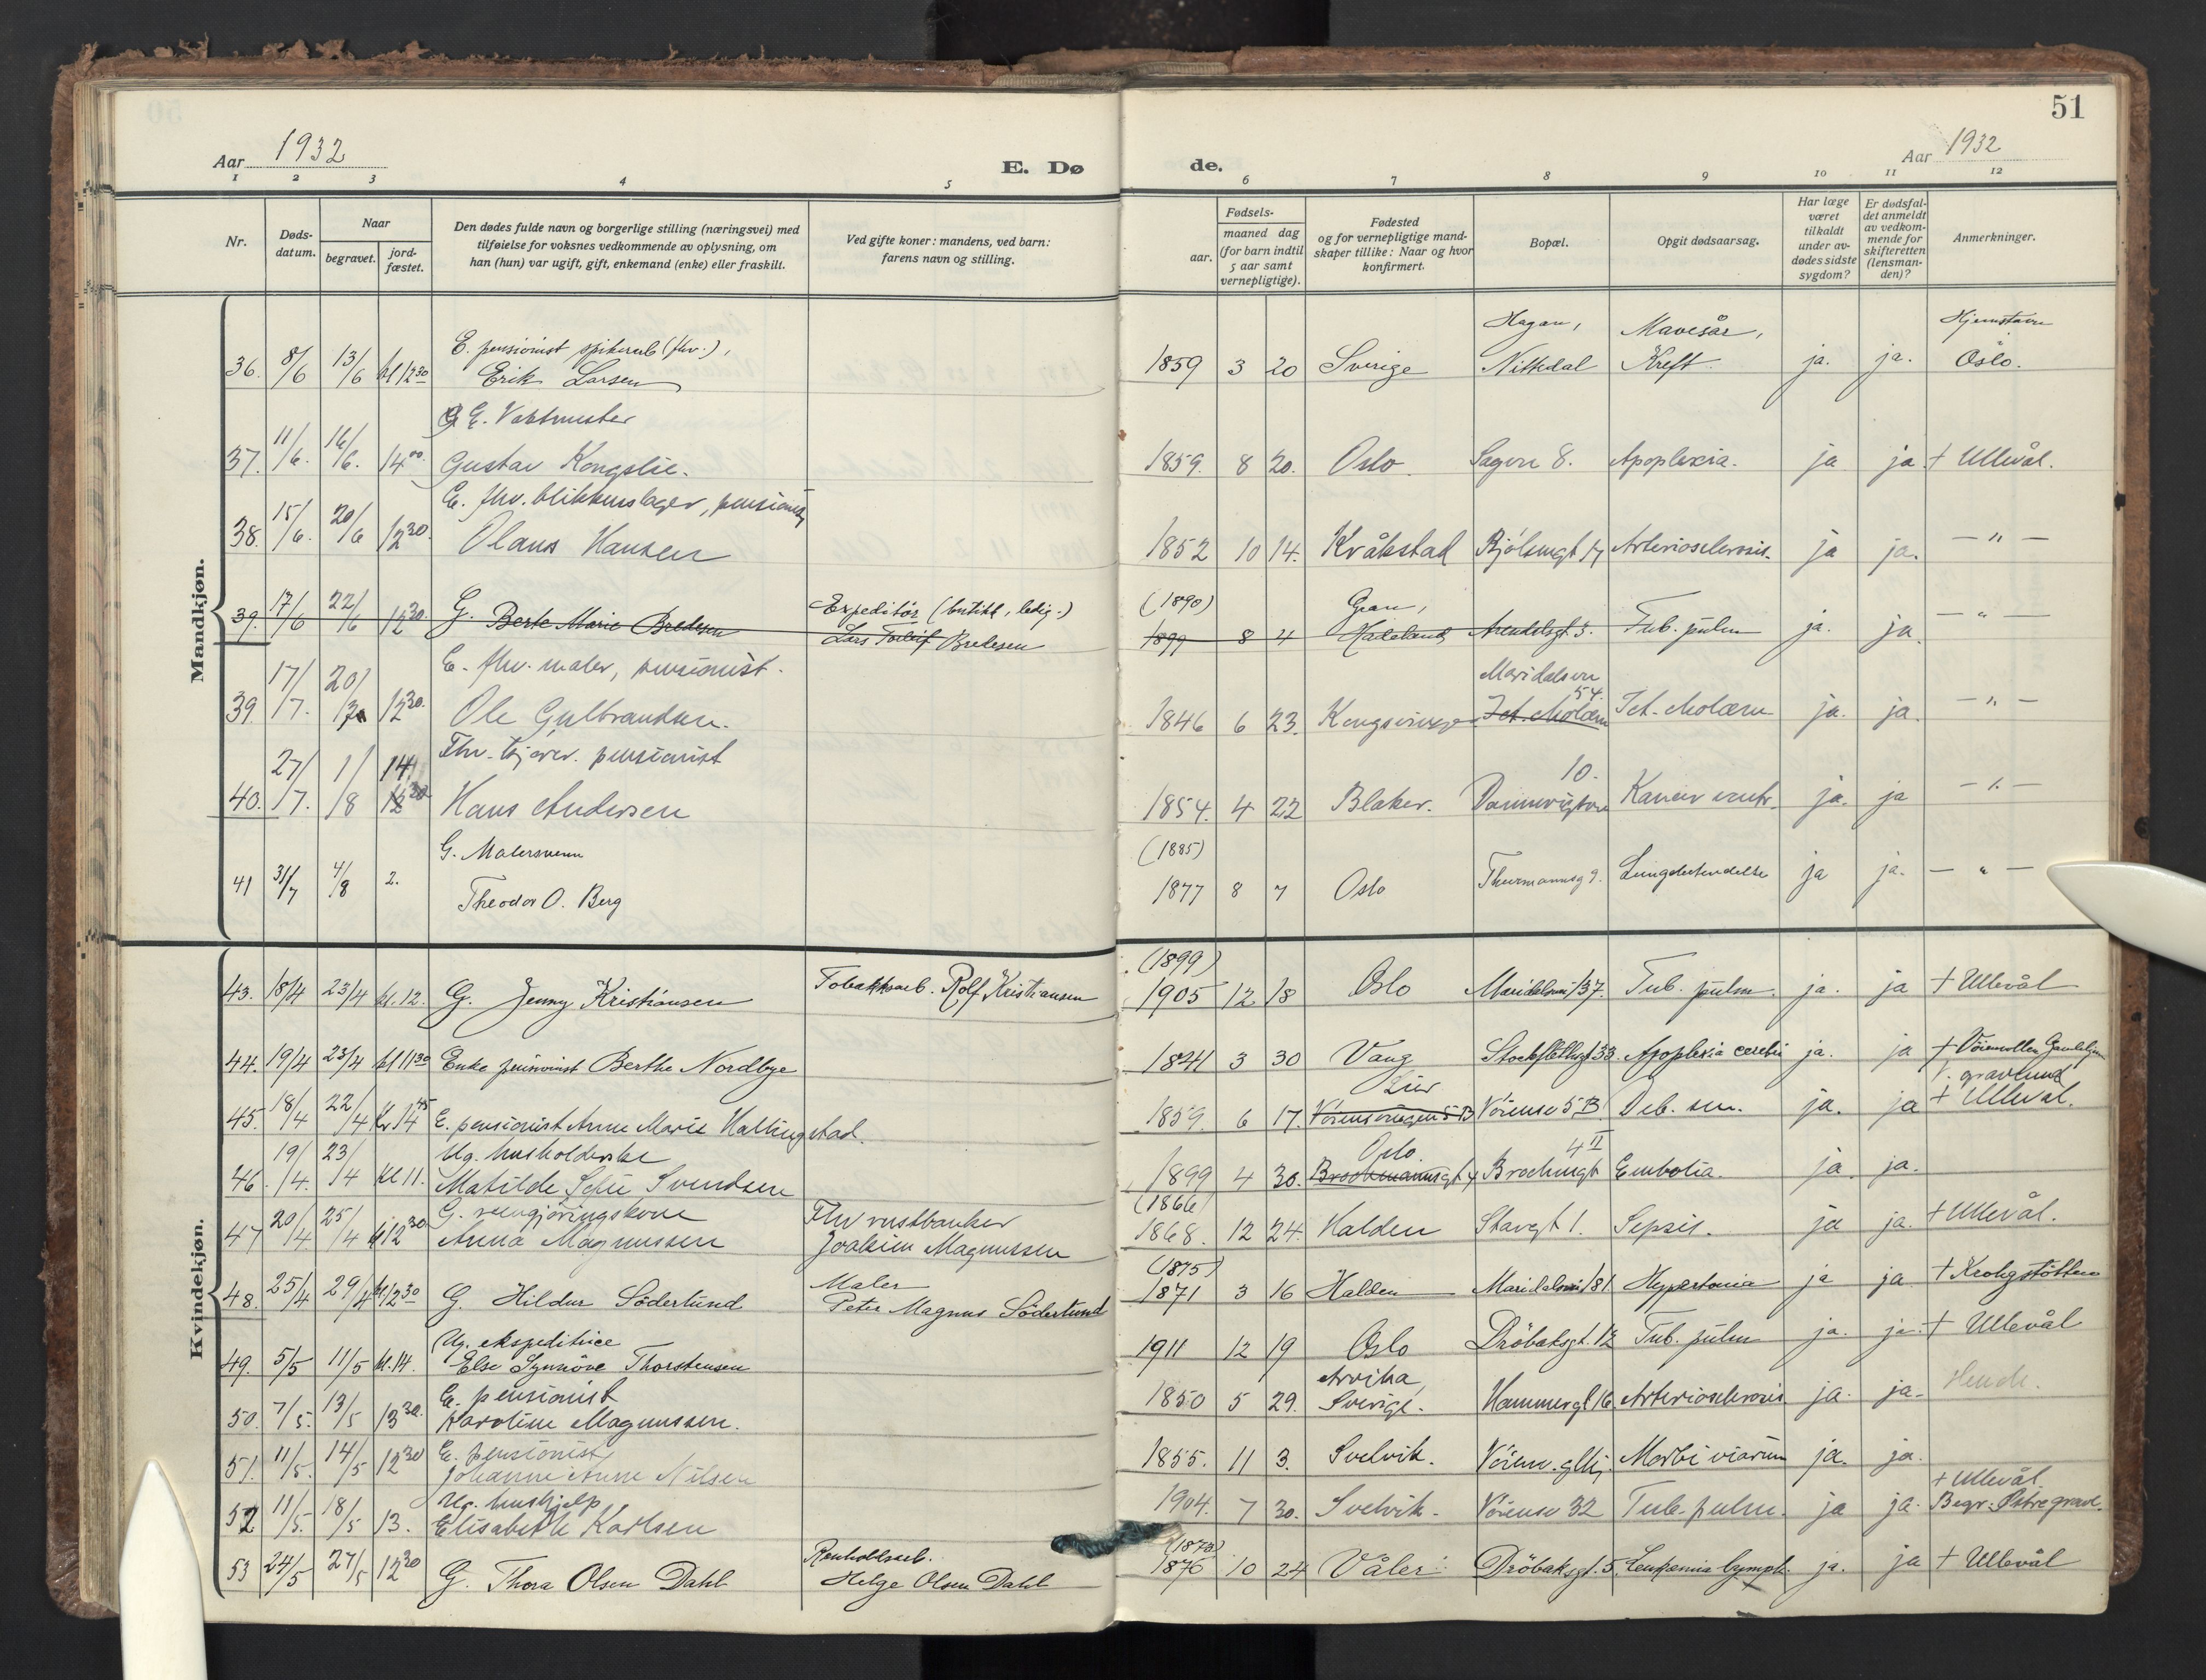 51
Aar 1932
E. Dø
de.
Aar 1932
1 2 3 4 5 6 7 8 9 10 11 12
Nr.
Døds-
datum.
Naar
begravet.
jord-
fæstet.
Den dødes fulde navn og borgerlige stilling (næringsvei) med
tilføielse for voksnes vedkommende av oplysning, om
han (hun) var ugift, gift, enkemand (enke) eller fraskilt.
Ved gifte koner: mandens, ved barn:
farens navn og stilling.
Fødsels-
aar.
maaned dag
(for barn indtil
5 aar samt
vernepligtige).
Fødested
og for vernepligtige mand-
skaper tillike: Naar og hvor
konfirmert.
Bopæl.
Opgit dødsaarsag.
Har læge
været
tilkaldt
under av-
dødes sidste
sygdom?
Er dødsfal-
det anmeldt
av vedkom-
mende for
skifteretten
(lensman-
den)?
Anmerkninger.
Mandkjøn.
E. pensionist (fhv.), Hagan, Mavesår,
36. 8/6 13/6 kl 12 30 Erik Larsen 1859 3 20 Sverige Nittedal Kreft. ja. ja. Oslo.
E. Vaktmester
37. 11/6. 16/6. 14 00. Gustav Kongslie. 1859. 8 20. Oslo. Sagvn 8. Apoplexia. ja ja + Ullevål.
E. fhv. blikkenslager, pensionist
38. 15/6. 20/6 12 30. Olaus Hansen 1852 10 14. Kråkstad Arteriosclerosis. ja ja. — " —
Expeditør (butikk, ledig.) (1890) Gran,
39. 17/6 22/6 12 30. G. Berte Marie Bredesen Lars Bredesen 1899 8 4 Hadeland Arendalsgt 3. Tub. pulm ja. ja. — " —
E. fhv. maler, pensionist. Maridalsvn 54.
39. 17/7. 20/7 12 30. Ole Gulbrandsen. 1846 6 23. Kongsvinger Ict. ja. ja. — " —
Fhv. pensionist 10.
40. 27/7. 1/8 14 Hans Andersen 1854. 4 22 Blaker. ja. ja — " —
G. Malersvenn (1885)
41 31/7 4/8 2. Theodor O. Berg 1877 8 7 Oslo Thurmannsg 9. Lungebetendelse ja ja. — " —
Kvindekjøn.
(1899)
43. 18/4 23/4 kl. 12. G. Jenny Kristiansen Tobakksarb. Rolf Kristiansen 1905 12 18 Oslo Maridalsvei 137. Tub. pulm. ja. ja + Ullevål
44. 19/4 23/4 kl 11 30 Enke pensionist Berthe Nordbye 1841 3 30 Vang Stockflethsgt 33. Apoplexia cerebri ja. ja + gravlund
Lier
45. 18/4 22/4 14 45 E. pensionist Anne Marie Hallingstad. 1859. 6 17. Vøiensvingen 5 B Vøiensv 5 B Deb. sen. ja. ja + Ullevål.
Ug. husholderske Oslo. 4 II
46. 19/4. 23/4 kl 11. Matilde Sofie Svendsen 1899 4 30. Brochmannsgt 4 Brochmgt Embolia. ja. ja.
G. rengjøringskone Fhv rustbanker (1866)
47 20/4 25/4 kl 12 30 Anna Magnussen Joakim Magnussen 1868. 12 24. Halden Stavgt 1. Sepsis. ja ja. + Ullevål.
Maler (1875)
48. 25/4 29/4 kl 12 30 G. Hildur Söderlund Peter Magnus Söderlund 1871 3 16 Halden Maridalsvei 181 Hypertonia ja ja + Krohgstøtten
Ug. ekspeditrice
49. 5/5 11/5 kl. 14. Else Synnøve Thorstensen 1911 12 19 Oslo Drøbaksgt. 12 Tub. pulm ja. ja. + Ullevål
E. pensionist Arvika,
50. 7/5. 13/5 13 30. Karoline Magnussen. 1850 5 29. Sverige. Hammergt 16. Arteriosclerosis ja. ja.
E. pensionist
51. 11/5. 14/5 12 30 Johanne Anne Nilsen 1855. 11 3. Svelvik. ja. ja.
Ug. hushjelp + Ullevål.
52 11/5. 18/5 13. Elisabeth Karlsen 1904. 7 30. Svelvik. Vøiensv 32 Tub. pulm. ja ja. Begr. Østre gravl.
Renholdsarb. (1873)
53 24/5 27/5 12 30 G. Thora Olsen Dahl Helge Olsen Dahl 1876 10 24 Våler Drøbaksgt. 5. Leukæmia lymph. ja. ja + Ullevål